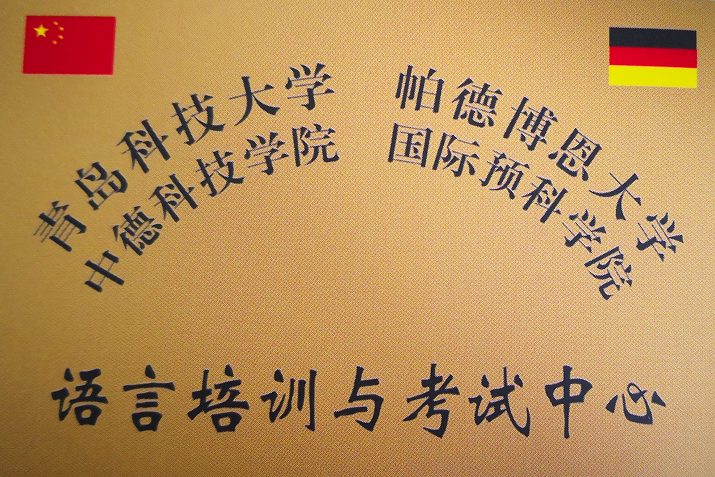 青岛科技大学
中德科技学院
帕德博恩大学
国际预科学院
语言培训与考试中心